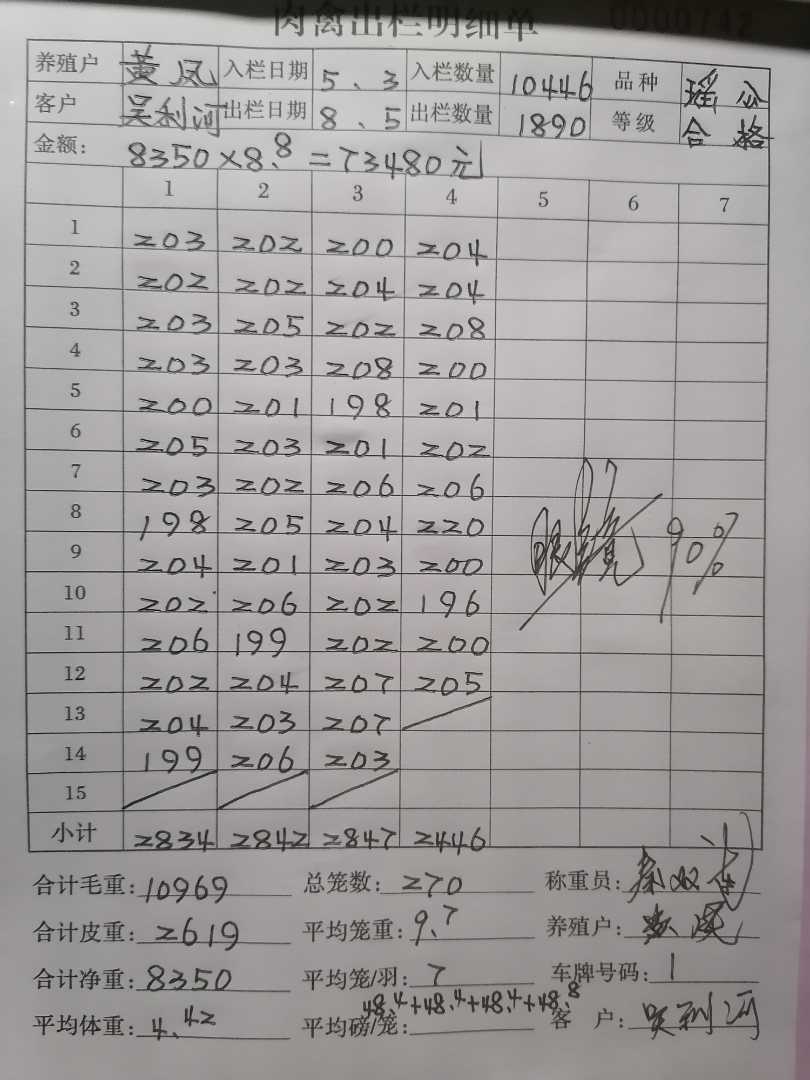 肉禽出栏明细单 0000742
养殖户 黄凤 入栏日期 5、3 入栏数量 10446 品种 瑶公
客户 吴利河 出栏日期 8、5 出栏数量 1890 等级 合格
金额: 8350×8.8=73480元
1 2 3 4 5 6 7
1 203 202 200 204
2 202 202 204 204
3 203 205 202 208
4 203 203 208 200
5 200 201 198 201
6 205 203 201 202
7 203 202 206 206
8 198 205 204 220
9 204 201 203 200
10 202 206 202 196
11 206 199 202 200
12 202 204 207 205
13 204 203 207
14 199 206 203
15
90%
小计 2834 2842 2847 2446
合计毛重: 10969 总笼数: 270 称重员:
合计皮重: 2619 平均笼重: 9.7 养殖户:
合计净重: 8350 平均笼/羽: 7 车牌号码: 1
平均体重: 4.42 平均磅/笼: 48.4+48.4+48.4+48.8 客户: 吴利河